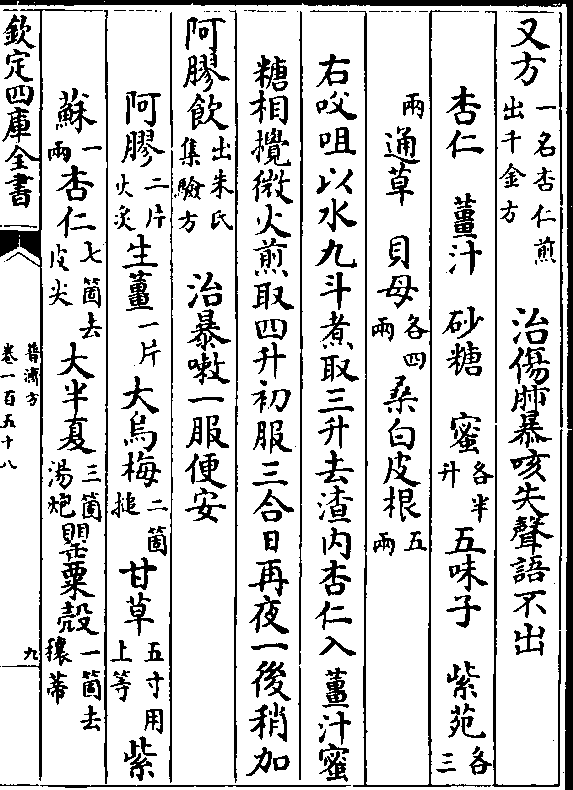 又方一名杏仁煎出千金方 治傷肺暴咳失聲語不出
杏仁 薑汁 砂糖 蜜各半升 五味子 紫菀各三
兩 通草 貝母各四兩 桑白皮根五兩
右㕮咀以水九斗煮取三升去渣内杏仁入薑汁蜜
糖相攪微火煎取四升初服三合日再夜一後稍加
阿膠飲出朱氏集驗方 治暴嗽一服便安
阿膠二片火炙 生薑一片 大烏梅二箇搥 甘草五寸用上等 紫
蘇一兩 杏仁七箇去皮尖 大半夏三箇湯炮 罌粟殼一箇去穰蒂
欽定四庫全書
普濟方
卷一百五十八
九